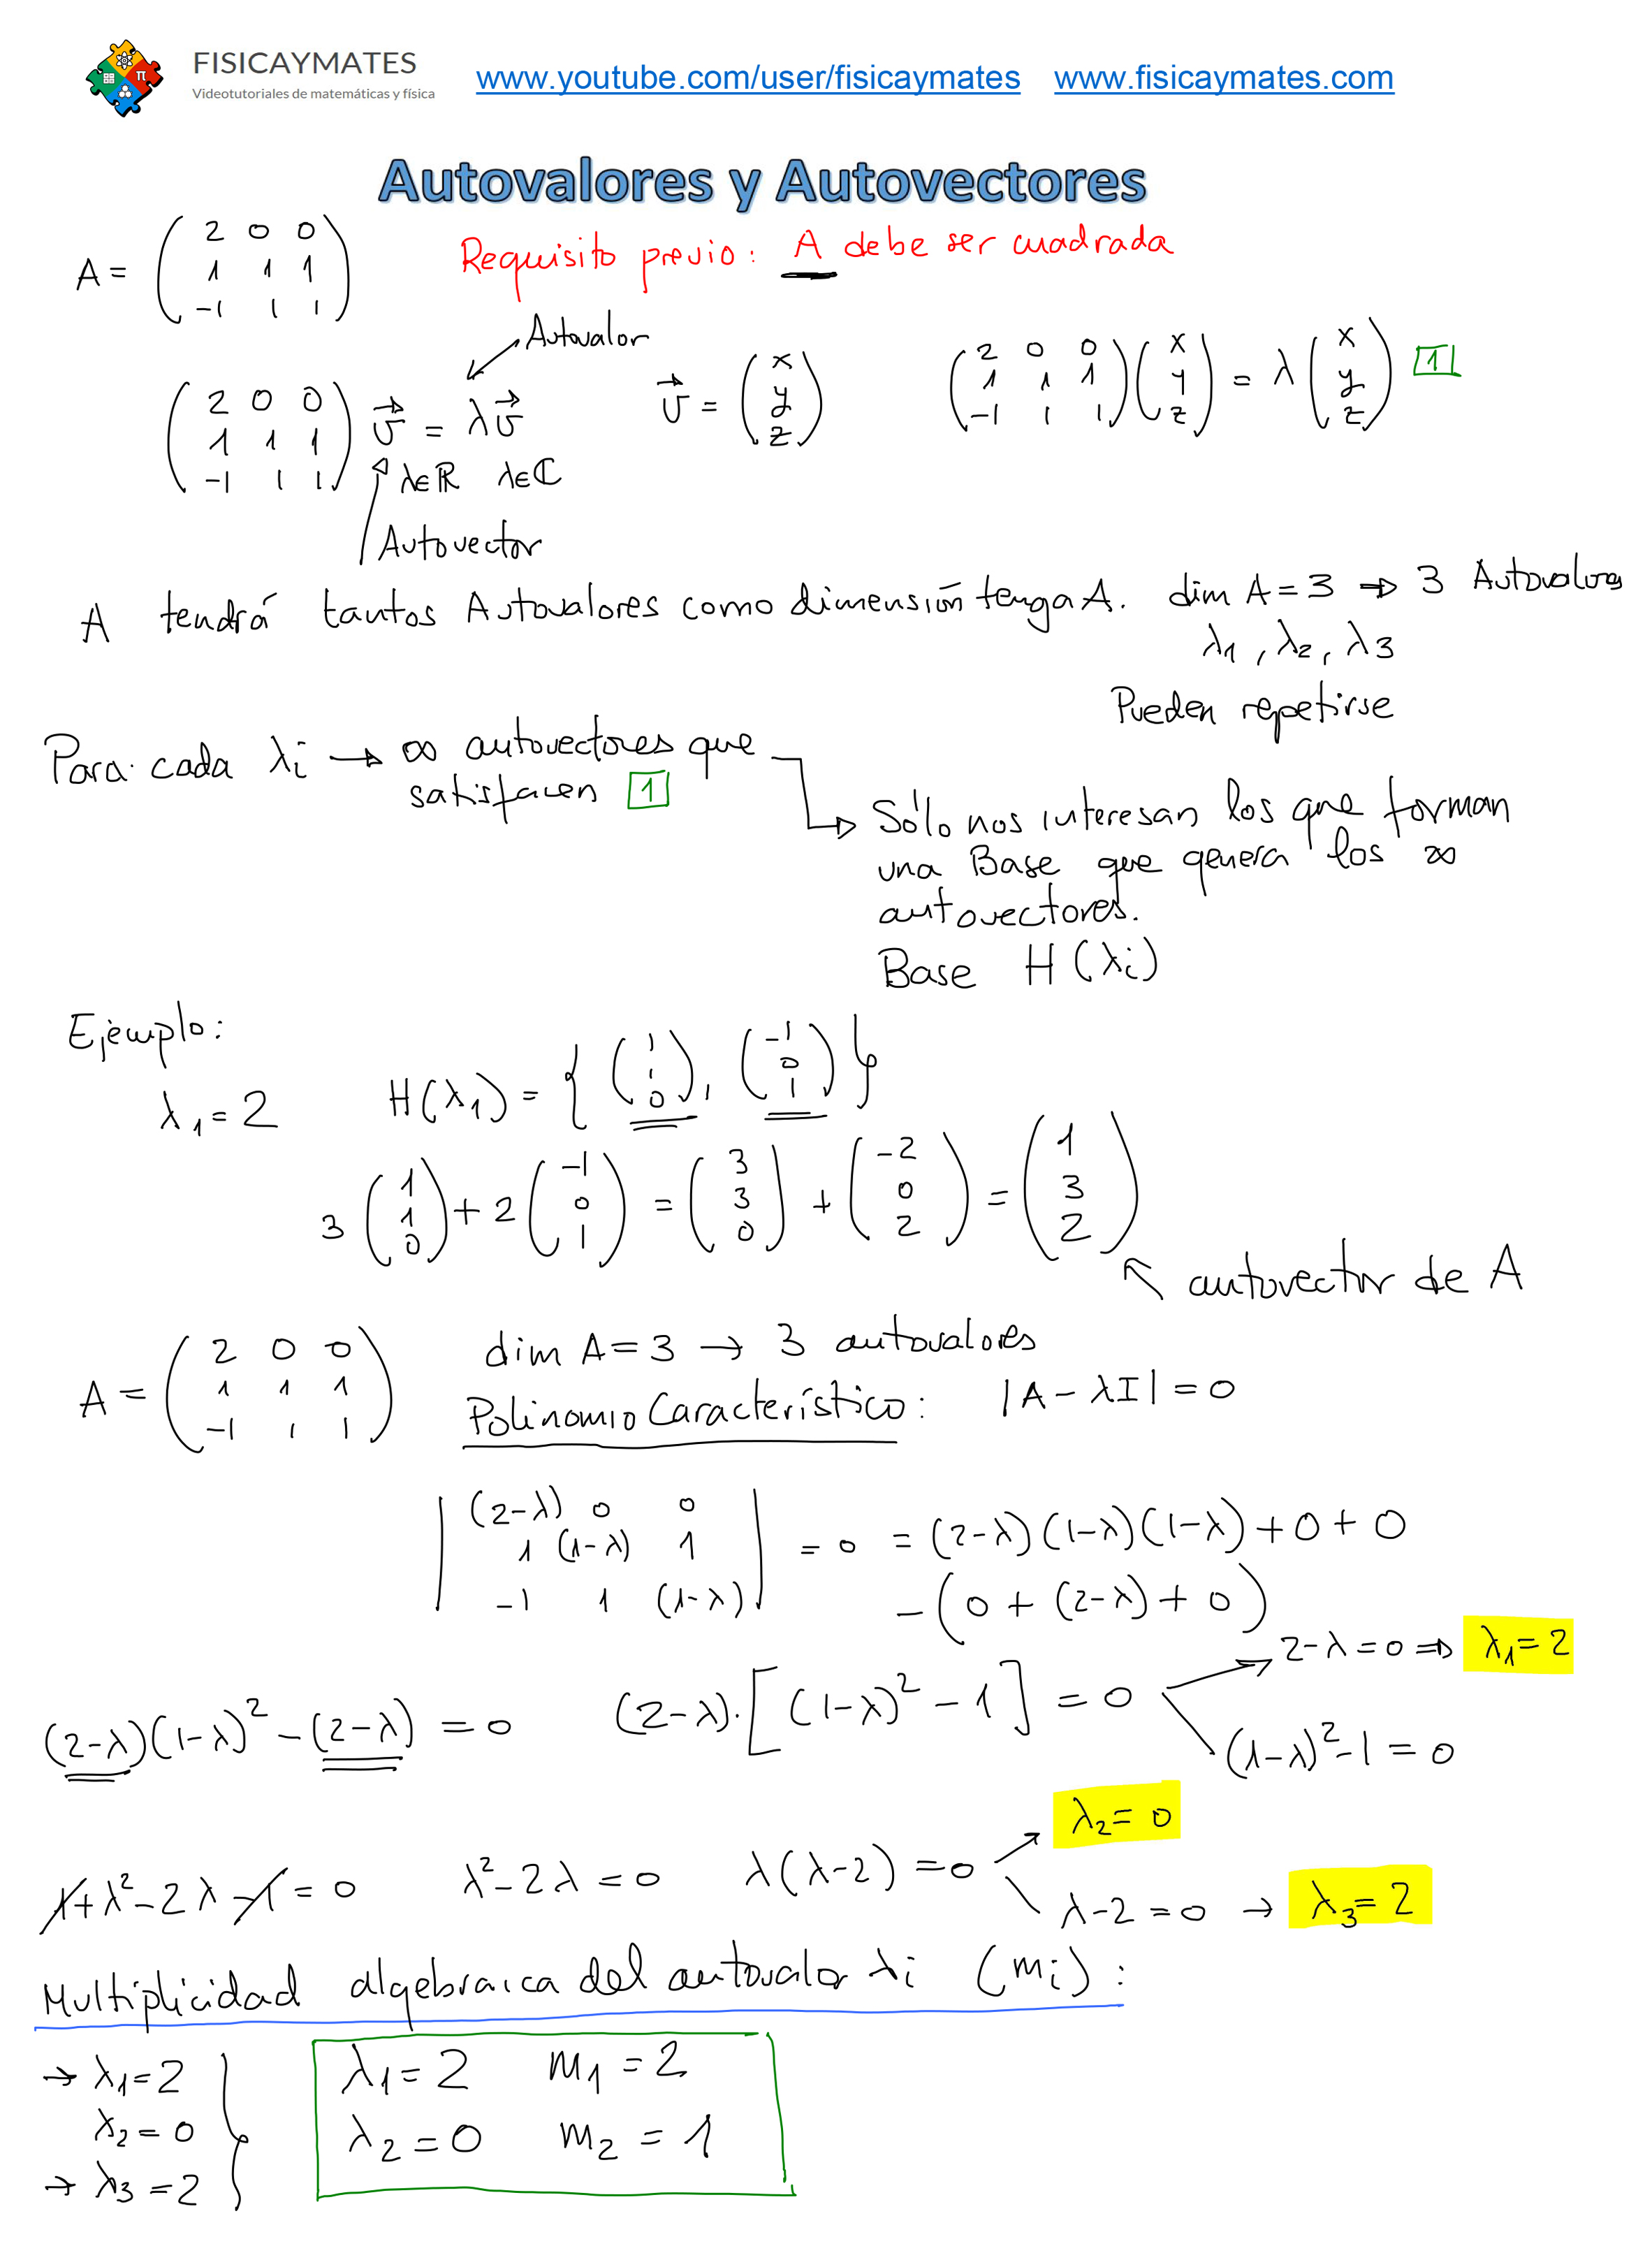 FISICAYMATES
Videotutoriales de matemáticas y física
www.youtube.com/user/fisicaymates www.fisicaymates.com
Autovalores y Autovectores
Requisito previo: A debe ser cuadrada
A = ( 2 0 0 / 1 1 1 / -1 1 1 )
Autovalor
( 2 0 0 / 1 1 1 / -1 1 1 ) v⃗ = λ v⃗
v⃗ = ( x / y / z )
( 2 0 0 / 1 1 1 / -1 1 1 ) ( x / y / z ) = λ ( x / y / z ) [1]
λ∈ℝ λ∈ℂ
Autovector
A tendrá tantos Autovalores como dimensión tenga A. dim A = 3 ⇒ 3 Autovalores
λ1, λ2, λ3
Pueden repetirse
Para cada λi → ∞ autovectores que
satisfacen [1]
Sólo nos interesan los que forman
una Base que genera los ∞
autovectores.
Base H(λi)
Ejemplo:
λ1 = 2 H(λ1) = { ( 1 / 1 / 0 ), ( -1 / 0 / 1 ) }
3 ( 1 / 1 / 0 ) + 2 ( -1 / 0 / 1 ) = ( 3 / 3 / 0 ) + ( -2 / 0 / 2 ) = ( 1 / 3 / 2 )
autovector de A
A = ( 2 0 0 / 1 1 1 / -1 1 1 )
dim A = 3 → 3 autovalores
Polinomio Característico: |A - λI| = 0
| (2-λ) 0 0 / 1 (1-λ) 1 / -1 1 (1-λ) | = 0 = (2-λ)(1-λ)(1-λ) + 0 + 0
- (0 + (2-λ) + 0)
(2-λ)(1-λ)² - (2-λ) = 0 (2-λ)·[(1-λ)² - 1] = 0
2-λ = 0 ⇒ λ1 = 2
(1-λ)² - 1 = 0
1 + λ² - 2λ - 1 = 0 λ² - 2λ = 0 λ(λ-2) = 0
λ2 = 0
λ-2 = 0 → λ3 = 2
Multiplicidad algebraica del autovalor λi (mi):
→ λ1 = 2
λ2 = 0
→ λ3 = 2
λ1 = 2 m1 = 2
λ2 = 0 m2 = 1